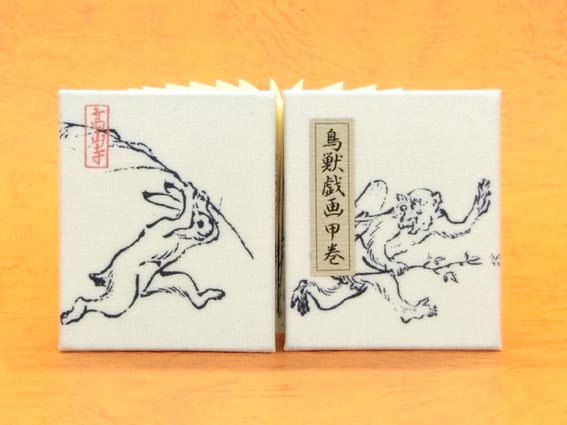 高山寺
鳥獣戯画 甲巻